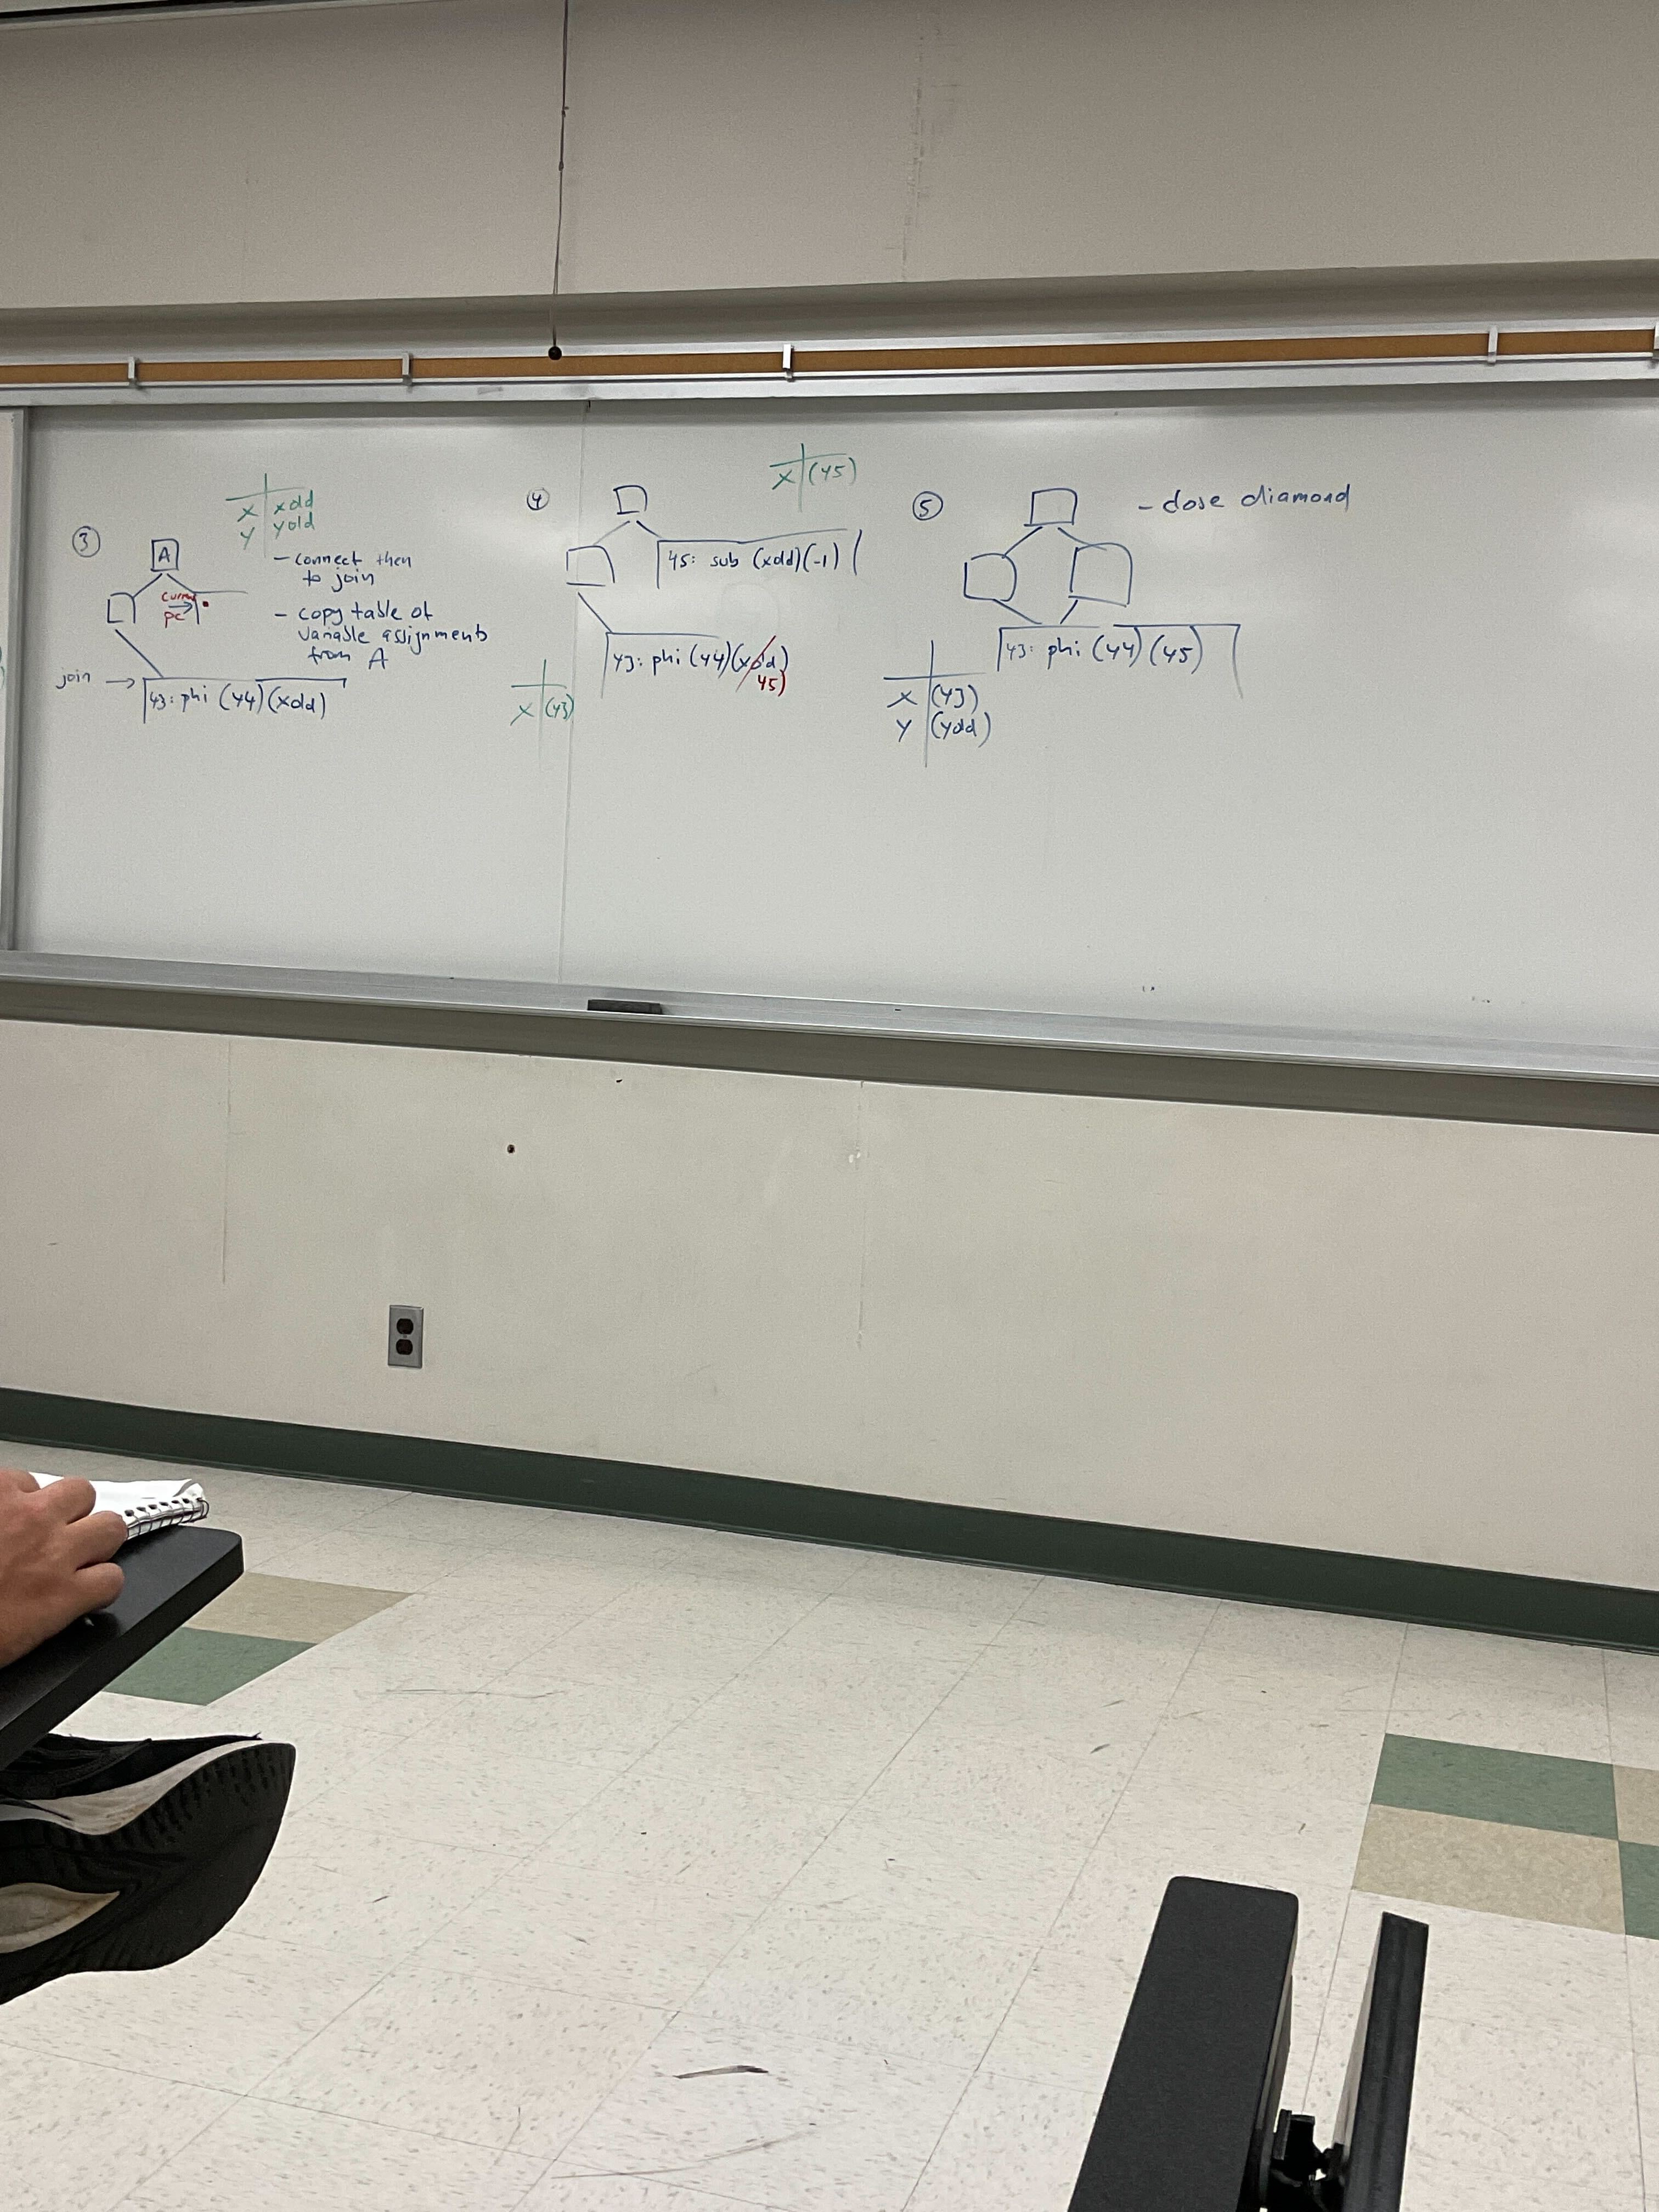 ③
x xold
y yold
A
- connect then
to join
current
pc
- copy table of
variable assignments
from A
join →
43: phi (44)(xold)
④
x (45)
45: sub (xold)(-1)
43: phi (44)(xold)
45)
x (43)
⑤
- close diamond
43: phi (44)(45)
x (43)
y (yold)